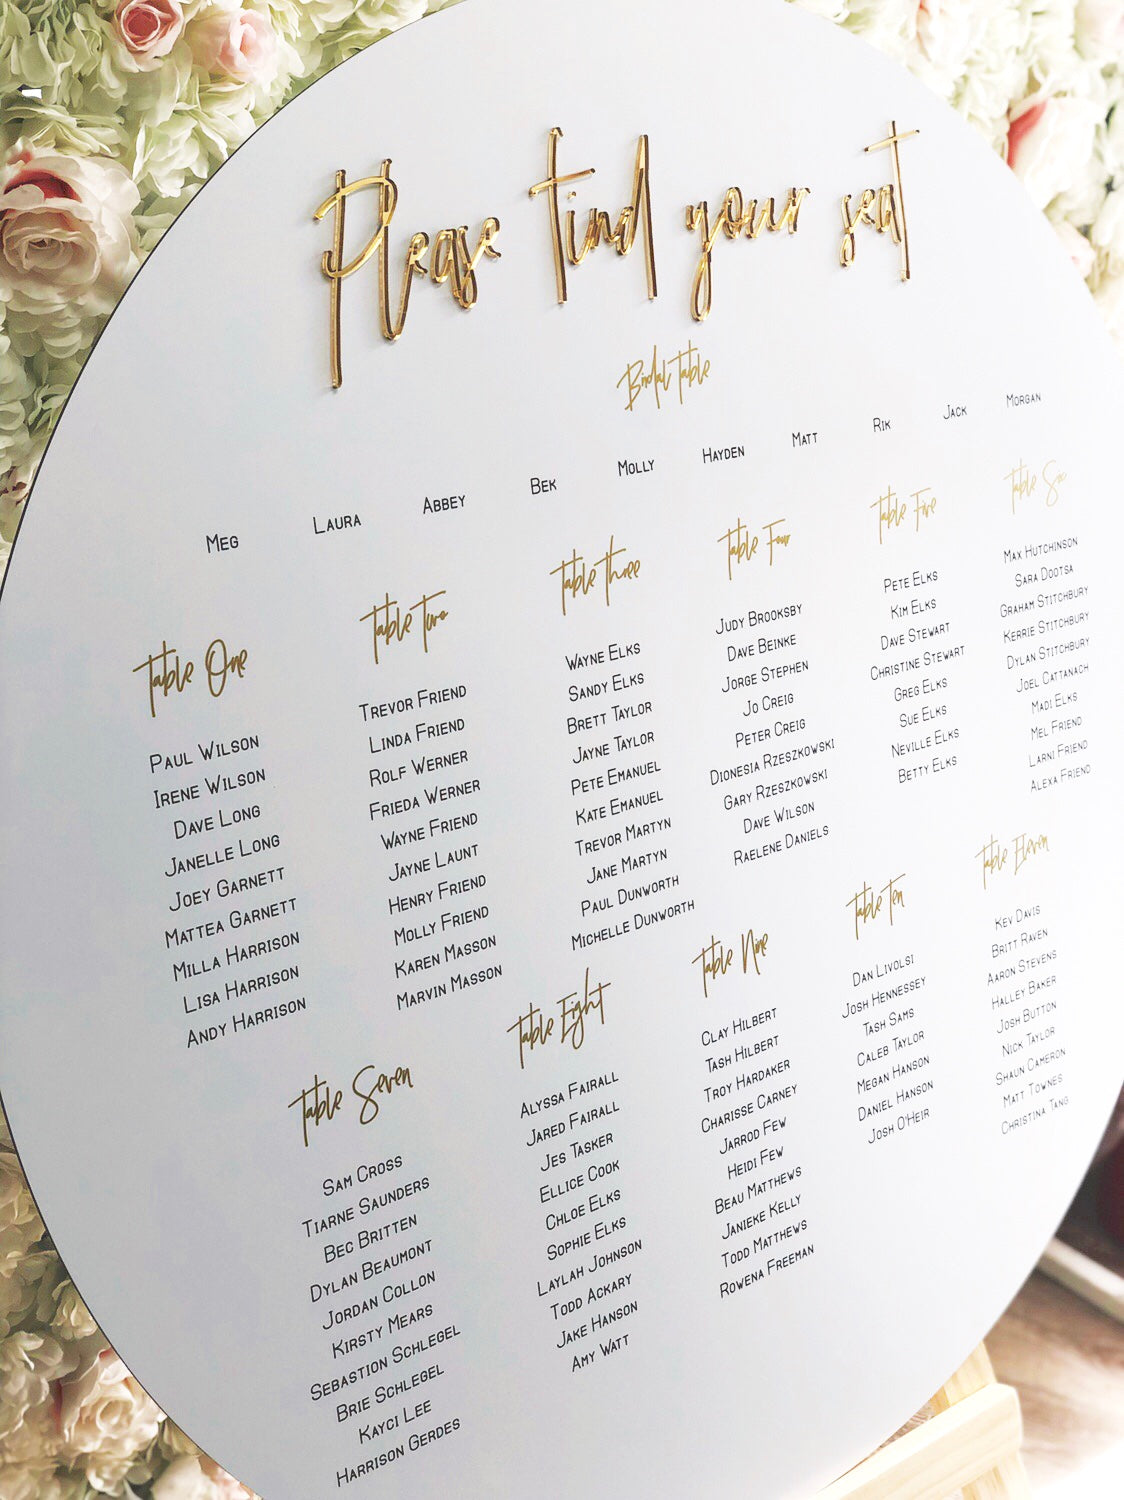 Please find your seat
Bridal Table
Meg Laura Abbey Bek Molly Hayden Matt Rik Jack Morgan
Table One
Paul Wilson
Irene Wilson
Dave Long
Janelle Long
Joey Garnett
Mattea Garnett
Milla Harrison
Lisa Harrison
Andy Harrison
Table Two
Trevor Friend
Linda Friend
Rolf Werner
Frieda Werner
Wayne Friend
Jayne Launt
Henry Friend
Molly Friend
Karen Masson
Marvin Masson
Table Three
Wayne Elks
Sandy Elks
Brett Taylor
Jayne Taylor
Pete Emanuel
Kate Emanuel
Trevor Martyn
Jane Martyn
Paul Dunworth
Michelle Dunworth
Table Four
Judy Brooksby
Dave Beinke
Jorge Stephen
Jo Creig
Peter Creig
Dionesia Rzeszkowski
Gary Rzeszkowski
Dave Wilson
Raelene Daniels
Table Five
Pete Elks
Kim Elks
Dave Stewart
Christine Stewart
Greg Elks
Sue Elks
Neville Elks
Betty Elks
Table Six
Max Hutchinson
Sara Dootsa
Graham Stitchbury
Kerrie Stitchbury
Dylan Stitchbury
Joel Cattanach
Madi Elks
Mel Friend
Larni Friend
Alexa Friend
Table Seven
Sam Cross
Tiarne Saunders
Bec Britten
Dylan Beaumont
Jordan Collon
Kirsty Mears
Sebastion Schlegel
Brie Schlegel
Kayci Lee
Harrison Gerdes
Table Eight
Alyssa Fairall
Jared Fairall
Jes Tasker
Ellice Cook
Chloe Elks
Sophie Elks
Laylah Johnson
Todd Ackary
Jake Hanson
Amy Watt
Table Nine
Clay Hilbert
Tash Hilbert
Troy Hardaker
Charisse Carney
Jarrod Few
Heidi Few
Beau Matthews
Janieke Kelly
Todd Matthews
Rowena Freeman
Table Ten
Dan Livolsi
Josh Hennessey
Tash Sams
Caleb Taylor
Megan Hanson
Daniel Hanson
Josh O'Heir
Table Eleven
Kev Davis
Britt Raven
Aaron Stevens
Halley Baker
Josh Button
Nick Taylor
Shaun Cameron
Matt Townes
Christina Tang